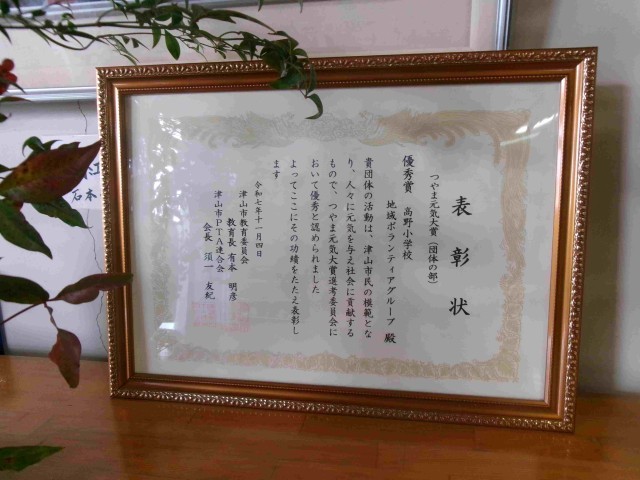 表彰状
つやま元気大賞(団体の部)
優秀賞 高野小学校
地域ボランティアグループ 殿
貴団体の活動は、津山市民の模範とな
り、人々に元気を与え社会に貢献する
もので、つやま元気大賞選考委員会に
おいて優秀と認められました
よってここにその功績をたたえ表彰し
ます
令和七年十一月四日
津山市教育委員会
教育長 有本 明彦
津山市PTA連合会
会長 須一 友紀
石本